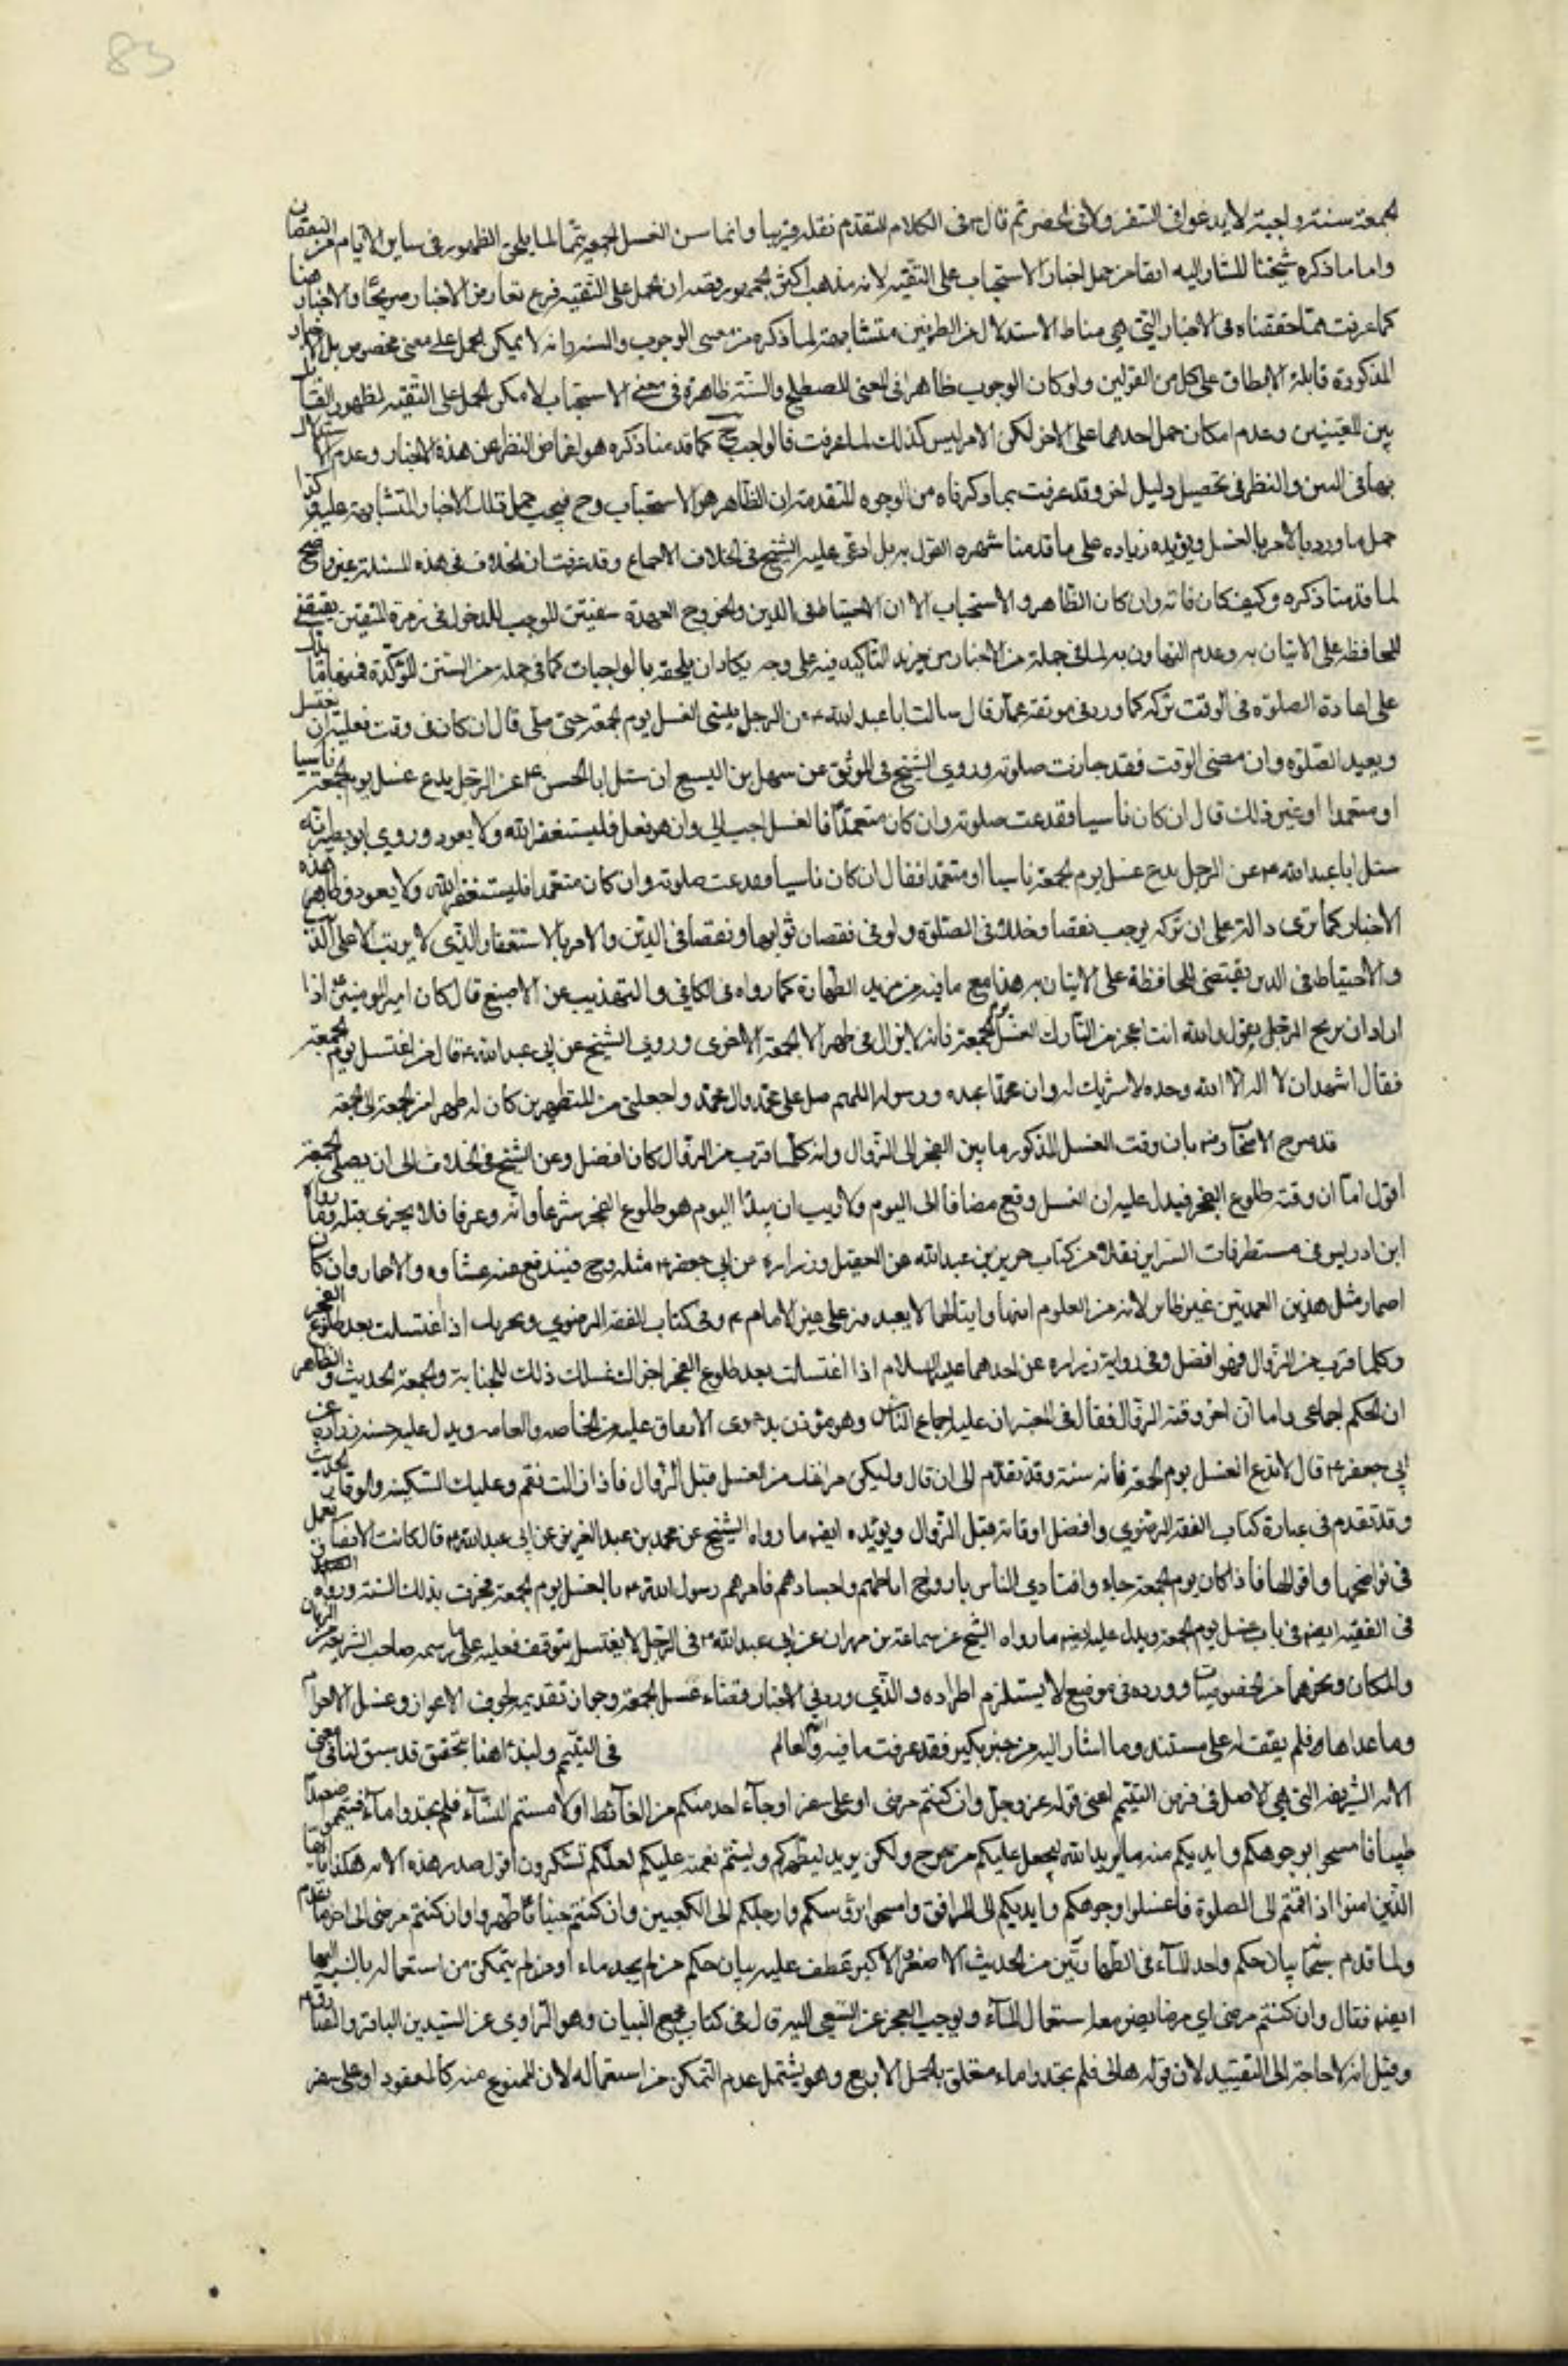 83
الجمعة سنة واجبة لا يدعو في السفر ولا في الحضر ثم قال في الكلام المتقدم نقله قريبا وانما سن الغسل الجمعة تتما لما يلحق الطهور في ساير الايام من النقصان
واما ما ذكره شيخنا المشار اليه ايضا من حمل اخبار الاستحباب على التقية لانه مذهب اكثر الجمهور ففيه ان الحمل على التقية فرع تعارض الاخبار صريحا والاخبار هنا
كما عرفت مما حققناه في الاخبار التي هي مناط الاستدلال من الطرفين متشابهة لما ذكره من معنى الوجوب والسنة وانه لا يمكن الحمل على معنى مخصوص بل الاخبار
المذكورة قابلة الانطباق على كل من القولين ولو كان الوجوب ظاهرا في المعنى المصطلح والسنة ظاهرة في معنى الاستحباب لامكن الحمل على التقية لظهور التقابل
بين المعنيين وعدم امكان حمل احدهما على الاخر لكن الامر ليس كذلك لما عرفت فالواجب ح كما قدمنا ذكره هو اغماض النظر عن هذه الاخبار وعدم الاستدلال
بها في البين والنظر في تحصيل دليل اخر وقد عرفت بما ذكرناه من الوجوه المتقدمة ان الظاهر هو الاستحباب وح فيجب حمل تلك الاخبار المتشابهة عليه وكذا
حمل ما ورد بالامر بالغسل ويؤيده زيادة على ما قدمنا شهرة القول به بل ادعى عليه الشيخ في الخلاف الاجماع وقد عرفت ان الخلاف في هذه المسئلة غير واضح
لما قدمنا ذكره وكيف كان فانه وان كان الظاهر هو الاستحباب الا ان الاحتياط في الدين والخروج العهدة بيقين الموجب للدخول في زمرة المتقين يقتضي
المحافظة على الاتيان به وعدم التهاون به لما في جملة من الاخبار من مزيد التاكيد فيه على وجه يكاد ان يلحقه بالواجبات كما في جملة من السنن المؤكدة فمنها ما دل
على اعادة الصلوة في الوقت بتركه كما ورد في موثقة عمار قال سالت ابا عبد الله ع عن الرجل ينسى الغسل يوم الجمعة حتى صلى قال ان كان في وقت فعليه ان يغتسل
ويعيد الصلوة وان مضى الوقت فقد جازت صلوته وروى الشيخ في الموثق عن سهل بن اليسع انه سئل ابا الحسن ع عن الرجل يدع غسل يوم الجمعة ناسيا
او متعمدا او غير ذلك قال ان كان ناسيا فقد تمت صلوته وان كان متعمدا فالغسل احب الي وان هو فعل فليستغفر الله ولا يعود وروى ابو بصير انه
سئل ابا عبد الله ع عن الرجل يدع غسل يوم الجمعة ناسيا او متعمدا فقال ان كان ناسيا فقد تمت صلوته وان كان متعمدا فليستغفر الله ولا يعود فظاهر هذه
الاخبار كما ترى دالة على ان تركه يوجب نقصا وخللا في الصلوة ولو في نقصان ثوابها ونقصا في الدين والامر بالاستغفار الذي لا يرتب الا على الذنب
والاحتياط في الدين يقتضي المحافظة على الاتيان به هذا مع ما فيه من مزيد الطهارة كما رواه في الكافي والتهذيب عن الاصبغ قال كان امير المومنين ع اذا
اراد ان يوبخ الرجل يقول والله انت اعجز من التارك الغسل يوم الجمعة فانه لا يزال في طهر الا الجمعة الاخرى وروى الشيخ عن ابي عبد الله ع قال من اغتسل يوم الجمعة
فقال اشهد ان لا اله الا الله وحده لا شريك له وان محمدا عبده ورسوله اللهم صل على محمد وال محمد واجعلني من المتطهرين كان له طهرا من الجمعة الى الجمعة
قد صرح الاصحاب رض بان وقت الغسل المذكور ما بين الفجر الى الزوال وانه كلما قرب من الزوال كان افضل وعن الشيخ في الخلاف الى ان يصلي الجمعة
اقول اما ان وقته طلوع الفجر فيدل عليه ان الغسل وقع مضافا الى اليوم ولا ريب ان مبدأ اليوم هو طلوع الفجر شرعا وانه وعرفا فلا يجزى قبله وما رواه
ابن ادريس في مستطرفات السراير نقلا من كتاب حريز بن عبد الله عن الفضيل وزرارة عن ابي جعفر ع مثله وح فيندفع عنه والاضمار وان كان
اضمار مثل هذين العمدتين غير ضاير لانه من العلوم انهما وامثالهما لا يعتمدون على غير الامام ع وفي كتاب الفقه الرضوي ويجزيك اذا اغتسلت بعد طلوع الفجر
وكلما قرب من الزوال فهو افضل وفي رواية زرارة عن احدهما عليهما السلام اذا اغتسلت بعد طلوع الفجر اجزاك غسلك ذلك للجنابة والجمعة الحديث والظاهر
ان الحكم اجماعي واما ان اخر وقته الزوال فقال في المعتبر ان عليه اجماع الناس وهو مؤذن بدعوى الاتفاق عليه من الخاصة والعامة ويدل عليه حسنة زرارة عن
ابي جعفر ع قال لا تدع الغسل يوم الجمعة فانه سنة وقد تقدم الى ان قال وليكن فراغك من الغسل قبل الزوال فاذا زالت فقم وعليك السكينة والوقار الحديث
وقد تقدم في عبارة كتاب الفقه الرضوي وافضل اوقاته قبل الزوال ويؤيده ايضا ما رواه الشيخ عن محمد بن عبد العزيز عن ابي عبد الله ع قال كانت الانصار تعمل
في نواضحها واموالها فاذا كان يوم الجمعة جاءوا فتاذى الناس بارواح اباطهم واجسادهم فامرهم رسول الله ص بالغسل يوم الجمعة فجرت بذلك السنة ورواه
في الفقيه ايضا في باب غسل يوم الجمعة ويدل عليه ايضا ما رواه الشيخ عن سماعة بن مهران عن ابي عبد الله ع في الرجل لا يغتسل يتوقف فعليه على ما رسمه صاحب الشريعة من الزمان
والمكان ونحوهما من الخصوصيات ووروده في موضع لا يستلزم اطراده والذي ورد في الاخبار قضاء غسل الجمعة وجواز تقديمه لخوف الاعواز وغسل الاحرام
وما عداهما فلم يقف له على مستند وما اشار اليه من خبر بكير فقد عرفت ما فيه والله العالم في التيمم ولنبدا هنا بتحقيق قد سبق لنا في معنى
الاية الشريفة التي هي الاصل في فرض التيمم اعني قوله عز وجل وان كنتم مرضى او على سفر او جاء احد منكم من الغائط او لامستم النساء فلم تجدوا ماء فتيمموا صعيدا
طيبا فامسحوا بوجوهكم وايديكم منه ما يريد الله ليجعل عليكم من حرج ولكن يريد ليطهركم وليتم نعمته عليكم لعلكم تشكرون اقول صدر هذه الاية هكذا يا ايها
الذين امنوا اذا قمتم الى الصلوة فاغسلوا وجوهكم وايديكم الى المرافق وامسحوا برؤسكم وارجلكم الى الكعبين وان كنتم جنبا فاطهروا وان كنتم مرضى الى اخر ما تقدم
ولما قدم سبحانه بيان حكم واجد الماء في الطهارتين من الحديث الاصغر والاكبر عطف عليه ببيان حكم من لم يجد ماء او من لم يتمكن من استعماله بالنسبة اليهما
ايضا فقال وان كنتم مرضى اي مرضا يضر معه استعمال الماء ويوجب العجز عن السعي اليه قال في كتاب مجمع البيان وهو المروي عن السيدين الباقر والصادق
وقيل انه لا حاجة الى التقييد لان قوله تعالى فلم تجدوا ماء متعلق بالجمل الاربع وهو يشتمل عدم التمكن من استعماله لان الممنوع منه كالمفقود او على سفر